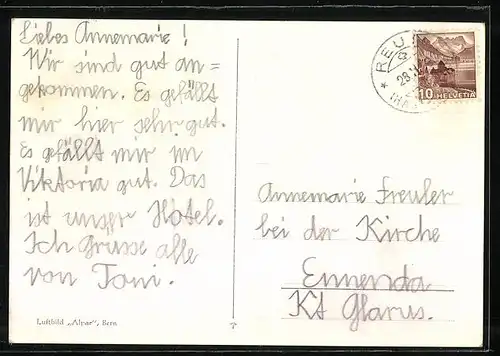 Liebes Annemarie!
Wir sind gut an=
gekommen. Es gefällt
mir hier sehr gut.
Es gefällt mir im
Viktoria gut. Das
ist unser Hotel.
Ich Grüsse alle
von Toni.
Luftbild „Alpar", Bern
REU
28.
(HA
10 HELVETIA
Annemarie Freuler
bei der Kirche
Ennenda
Kt Glarus.